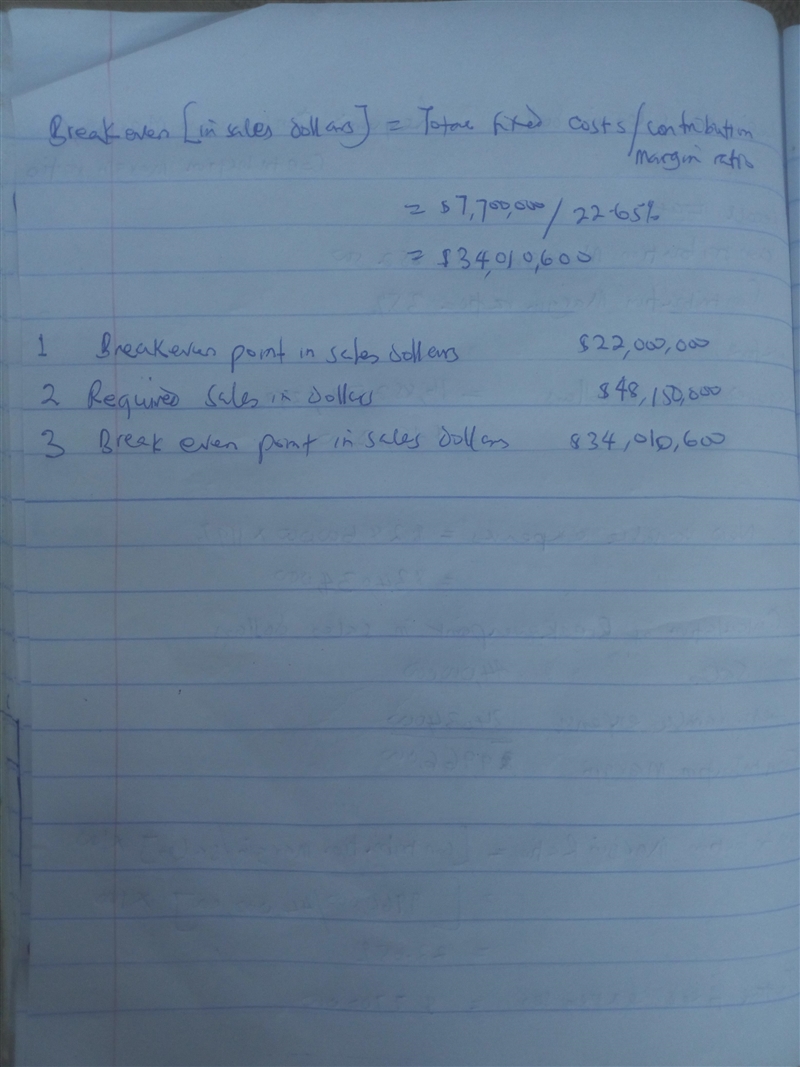 Breakeven [in sales dollars] = Total fixed costs/contribution
margin ratio
= $7,700,000/22.65%
= $34,010,600
1 Breakeven point in sales dollars $22,000,000
2 Required Sales in Dollars $48,150,000
3 Break even point in sales dollars $34,010,600